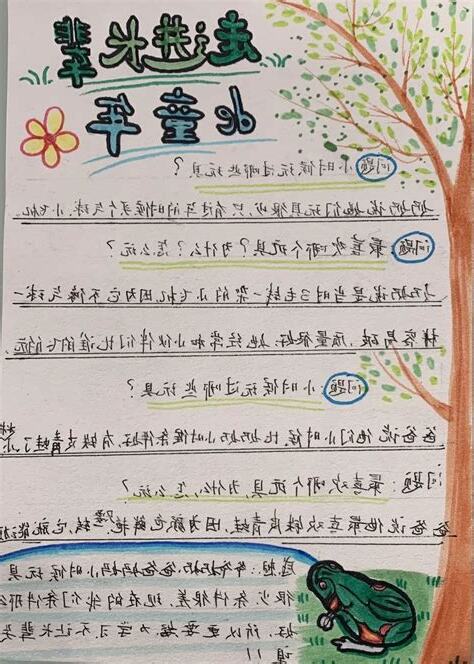 走进长辈
de童年
问题 小时候玩过哪些玩具?
奶奶说她们玩具很少,只有过年的时候买个气球、小飞机
问题:最喜欢哪个玩具?为什么?怎么玩?
奶奶说是当时3毛钱一架的小飞机,因为它不像气球一
样容易破,质量很好.她经常和小伙伴们比谁的飞的远.
问题 小时候玩过哪些玩具?
爸爸说他们小时候比奶奶小时候条件好,有铁皮青蛙了
问题:最喜欢哪个玩具,为什么,怎么玩?
爸爸说他最喜欢铁皮青蛙,因为颜色鲜艳,它就能
感想:爷爷奶奶爸爸妈妈小时候玩具
很少条件很差,现在的我们条件那么
好,所以更要努力学习不让长辈失
望!!